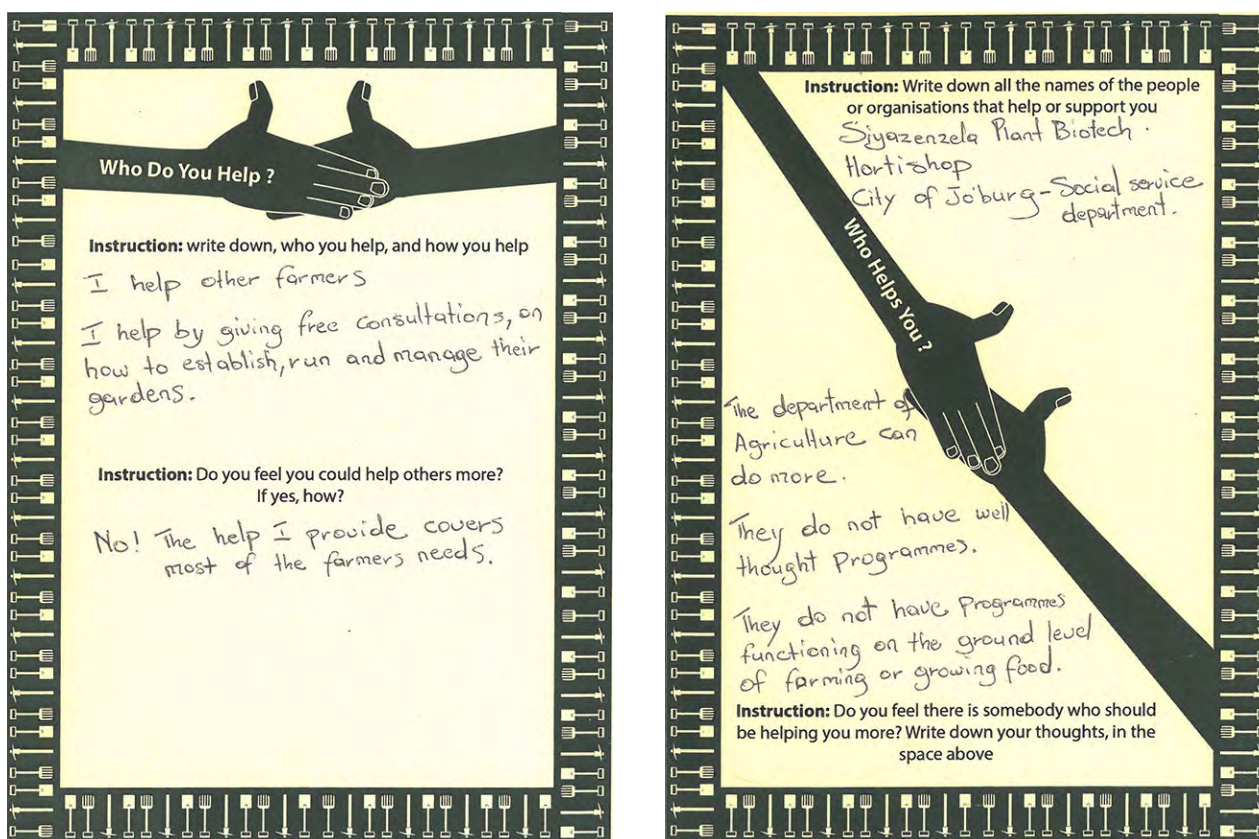 Who Do You Help ?
Instruction: write down, who you help, and how you help
I help other farmers
I help by giving free consultations, on
how to establish, run and manage their
gardens.
Instruction: Do you feel you could help others more?
If yes, how?
No! The help I provide covers
most of the farmers needs.
Instruction: Write down all the names of the people
or organisations that help or support you
Siyazenzela Plant Biotech.
Hortishop
City of Jo'burg - Social service
department.
Who Helps You ?
The department of
Agriculture can
do more.
They do not have well
thought Programmes.
They do not have Programmes
functioning on the ground level
of farming or growing food.
Instruction: Do you feel there is somebody who should
be helping you more? Write down your thoughts, in the
space above